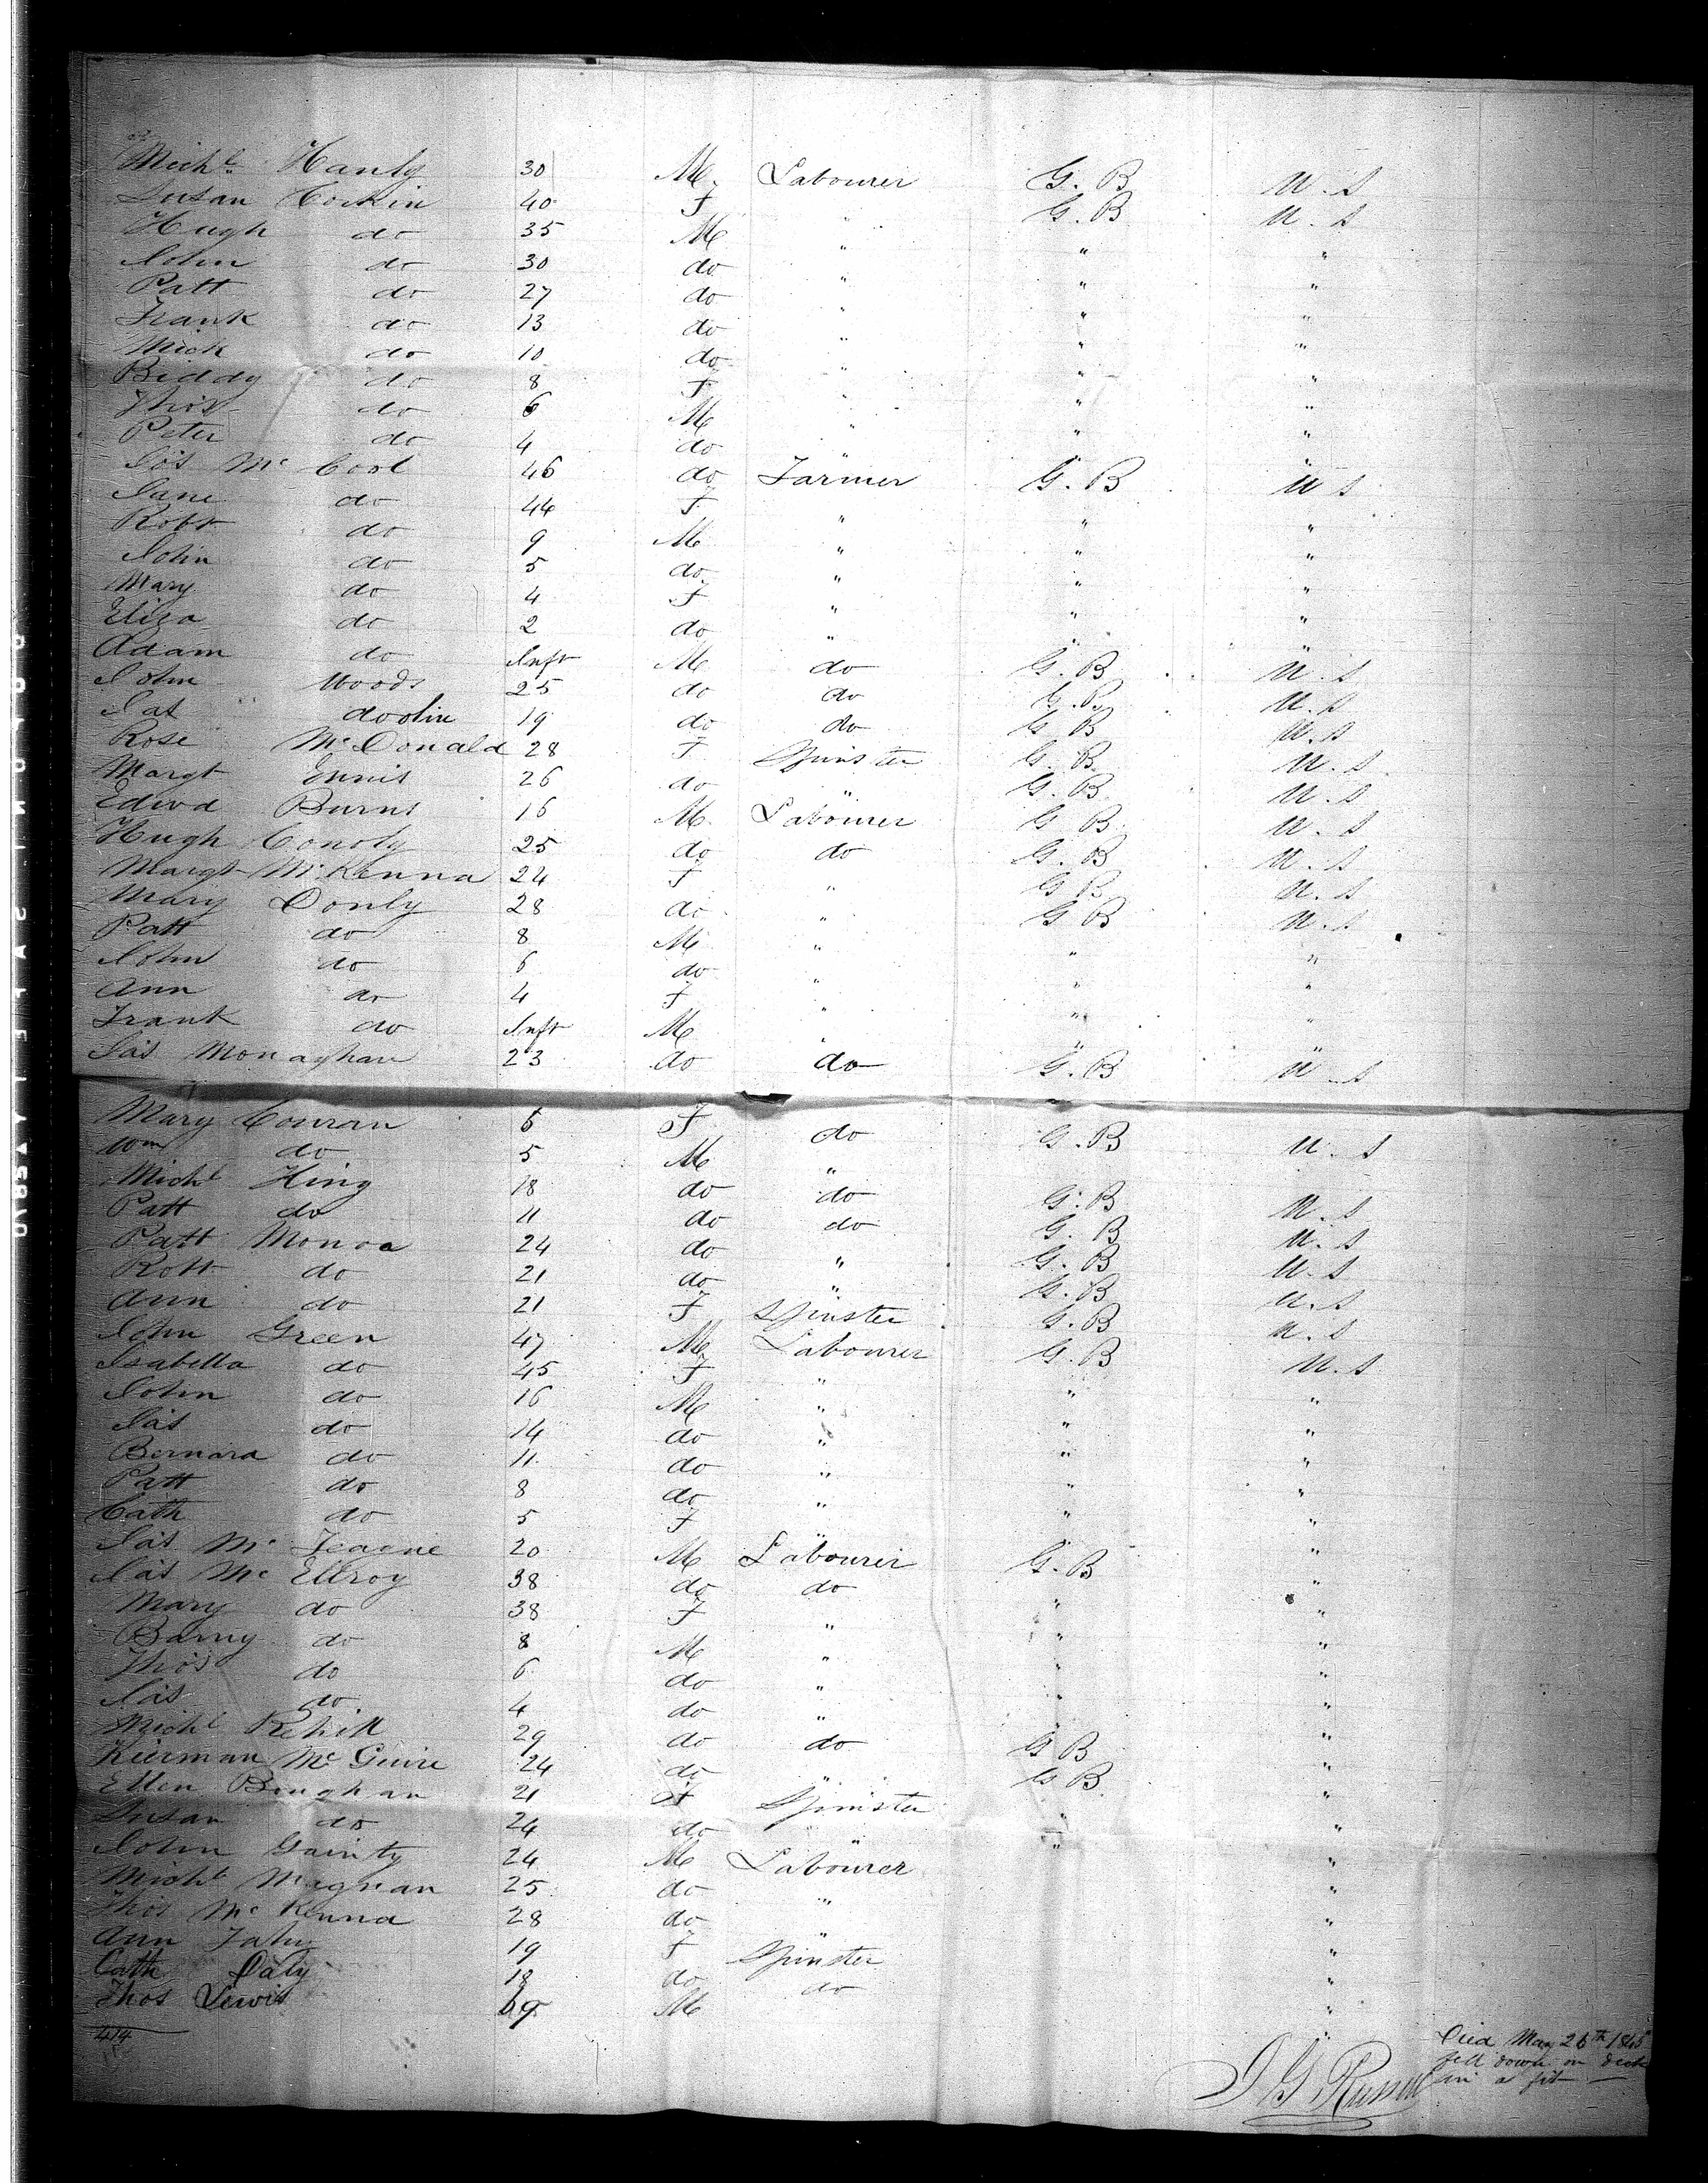 Michl. Hanly 30 M. Labourer G. B U. S
Susan Corkin 40 F " G. B U. S
Hugh do 35 M " " "
John do 30 do " " "
Patt do 27 do " " "
Frank do 13 do " " "
Mick do 10 do " " "
Biddy do 8 F " " "
Thos do 6 M " " "
Peter do 4 do " " "
Jas Mc Cord 46 do Farmer G. B U S
Jane do 44 F " " "
Robt do 9 M " " "
John do 5 do " " "
Mary do 4 F " " "
Eliza do 2 do " " "
Adam do Inft M do G. B U. S
John Woods 25 do do G. B U. S
Jas doolin 19 do do G B U. S
Rose McDonald 28 F Spinster G. B U. S
Margt Ennis 26 do " G. B U. S
Edwd Burns 16 M Labourer G B U. S
Hugh Conoly 25 do do G. B U. S
Margt McKenna 24 F " G B U. S
Mary Donly 28 do " G B U. S
Patt do 8 M " " "
John do 6 do " " "
Ann do 4 F " " "
Frank do Inft M " " "
Jas Monaghan 23 do do G. B U. S
Mary Conran 6 F do G. B U. S
Wm do 5 M "
Michl King 18 do do G. B U. S
Patt do 11 do do G. B U. S
Patt Monoa 24 do " G. B U. S
Robt do 21 do " G. B U. S
Ann do 21 F Spinster G. B U. S
John Green 47 M Labourer G. B U. S
Isabella do 45 F " " "
John do 16 M " " "
Jas do 14 do " " "
Bernard do 11 do " " "
Patt do 8 do " " "
Cath do 5 F " "
Jas Mc Teague 20 M Labourer G. B "
Jas Mc Ellroy 38 do do "
Mary do 38 F " " "
Barny do 8 M " " "
Thos do 6 do " " "
Jas do 4 do " " "
Michl 29 do do G B "
Kierman McGuire 24 do " G B "
Ellen Boughan 21 F Spinster " "
Susan do 24 do " " "
John Gainty 24 M Labourer "
Michl Magnan 25 do " "
Thos Mc Kenna 28 do " "
Ann Fahy 19 F Spinster "
Cath Daly 18 do do "
Thos Lewis M "
414
Died May 26th
fell down on deck
in a fit
J G Russell